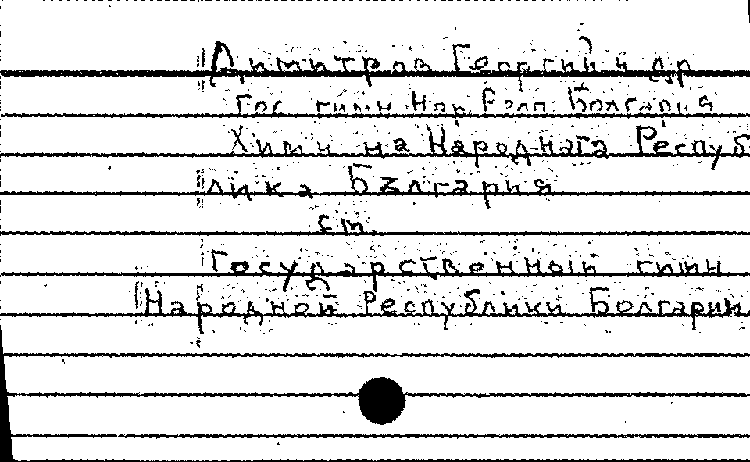 Димитров Георгий и др
Гос. гимн Нар. Респ. Болгария
Химн на Народната Респуб
лика България
см.
Государственный гимн
Народной Республики Болгарии